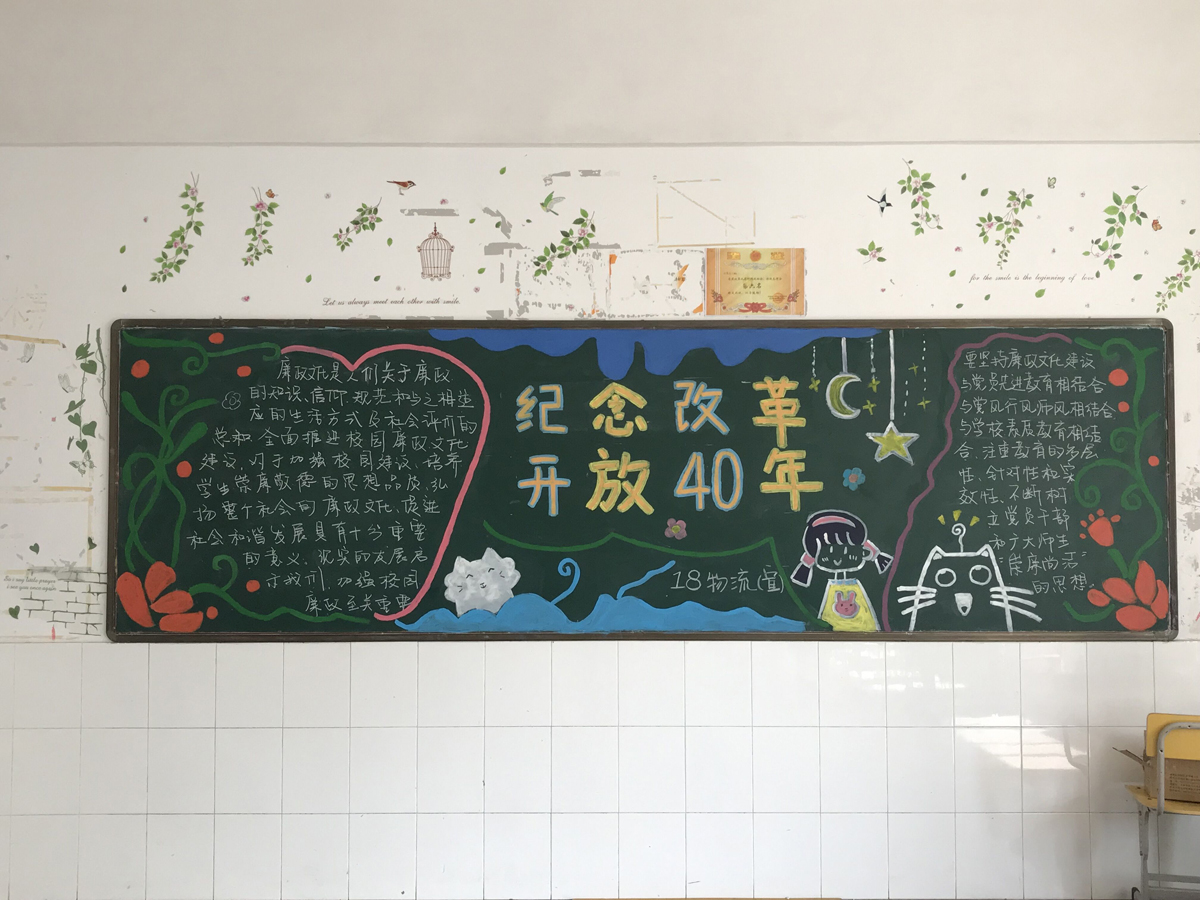 Let us always meet each other with smile.
for the smile is the beginning of love
廉政文化是人们关于廉政
的知识、信仰、规范和与之相适
应的生活方式及社会评价的
总和,全面推进校园廉政文化
建设,对于加强校园建设、培养
学生崇廉敬德的思想品质,弘
扬整个社会的廉政文化,促进
社会和谐发展具有十分重要
的意义,
廉政至关重要
纪念改革
开放40年
18物流(宣)
要坚持廉政文化建设
与党员先进教育相结合
与党风行风师风相结合
与学校素质教育相结
合,注重教育的多层
性、针对性和实
效性,不断树
立党员干部
和广大师生
"崇廉尚洁"
的思想